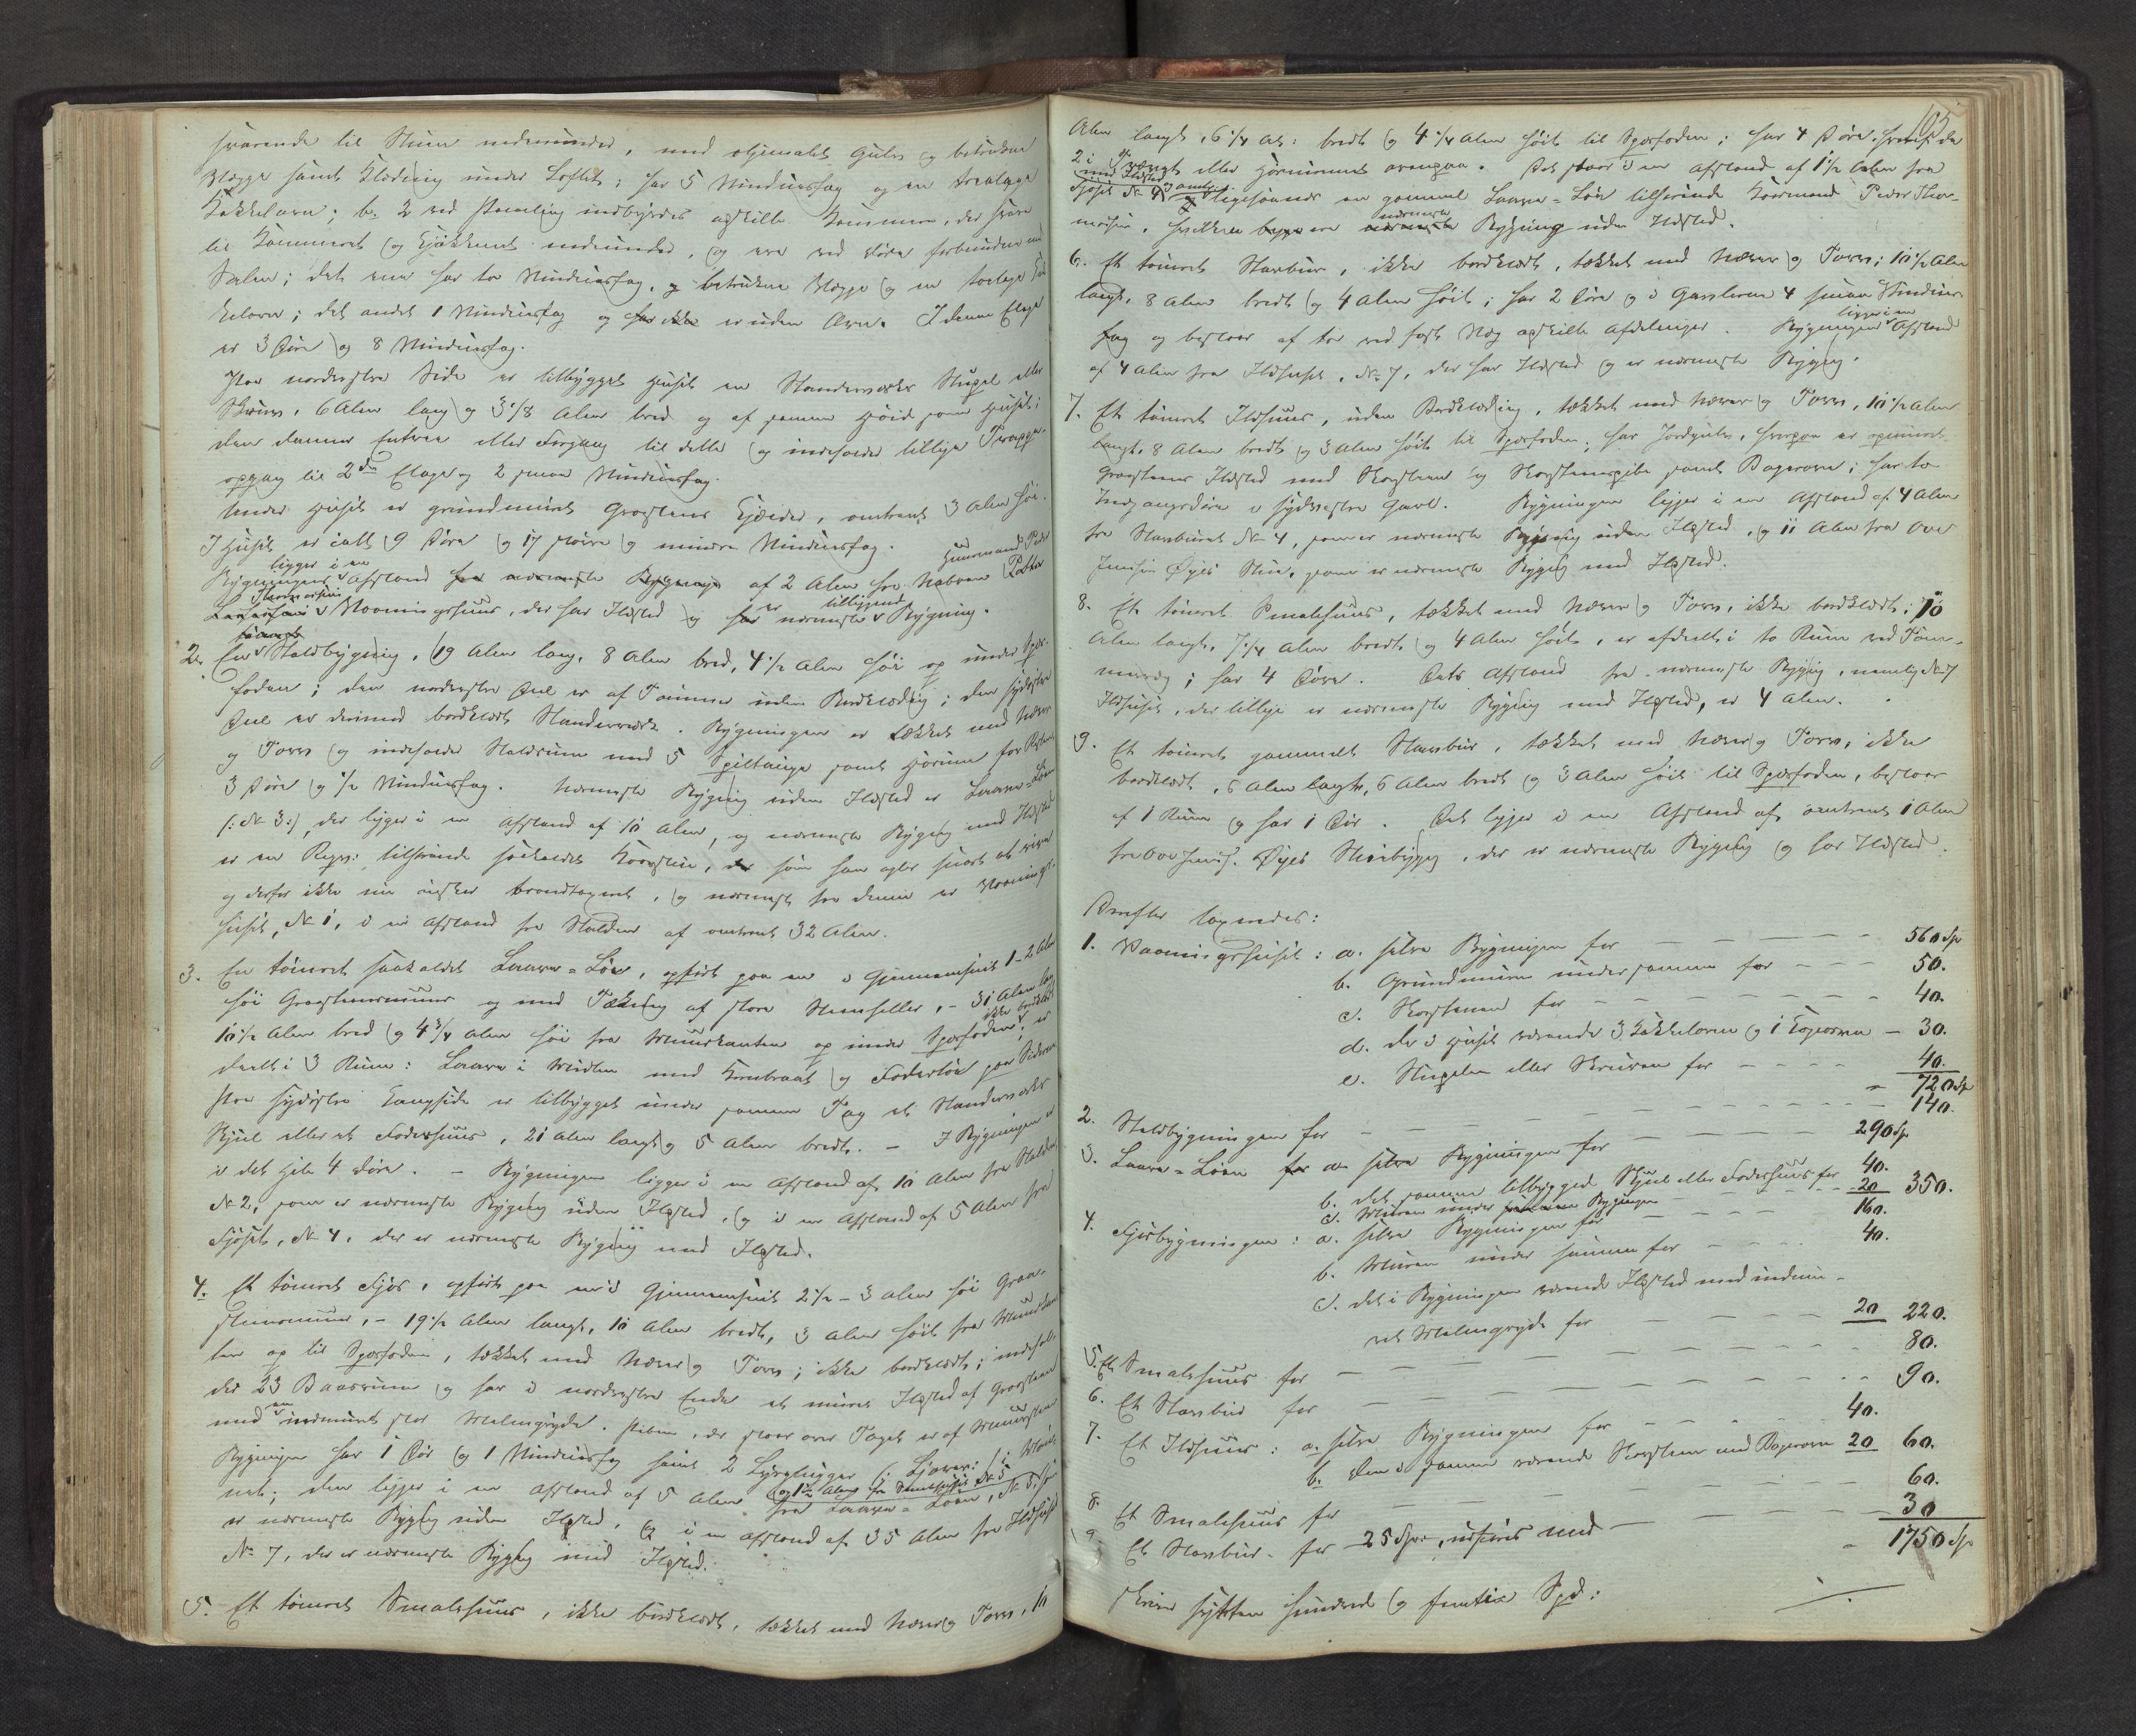 svarende til Stuen nedenunder, med oljemalet Gulv og betrukne
Vægge samt Klædning under Loftet; har 5 Vinduesfag og en treetages
Kakkelovn; b. 2 ved Paneling indbyrdes adskilte Kammere, der svare
til Kammeret og Kjøkkenet nedenunder, og ere ved Døre forbundne med
Salen; det ene har to Vinduesfag, betrukne Vægge og en toetages Kak-
kelovn; det andet 1 Vinduesfag og er uden Ovn. I denne Etage
er 3 Døre og 8 Vinduesfag.
Paa nordvestre Side er tilbygget Huset en Standerværks Stupel eller
Skruv, 6 Alen lang og 3 1/8 Alen bred og af samme Høide som Huset;
den danner Entree eller Forgang til dette og indeholder tillige Trappe-
opgang til 2den Etage og 2 smaa Vinduesfag.
Under Huset er grundmuret Graasteens Kjælder, omtrent 3 Alen høi.
I Huset er ialt 9 Døre og 17 større og mindre Vinduesfag.
ligger i en Huusmand Peder
Bygningen Afstand fra nærmeste Bygning af 2 Alen fra Naboen
Thormodsen er tilliggende
Vaaningshuus, der har Ildsted og har nærmeste Bygning.
tømret
2. En Staldbygning, 19 Alen lang, 8 Alen bred, 4 1/2 Alen høi op under Spær-
foden; den nordvestre Deel er af Tømmer uden Bordklædning; den sydøstre
Deel er derimod bordklædt Standerværk. Bygningen er tækket med Næver
og Torv og indeholder Staldrum med 5 Spiltauge samt Hørum for
3 Døre og 1/2 Vinduesfag. Nærmeste Bygning uden Ildsted er Laave-Løen
(: No 3:), der ligger i en Afstand af 10 Alen, og nærmeste Bygning med Ildsted
er en tilhørende saakaldet Kaarstue, som han agter snart at rive
og derfor ikke nu ønsker brandtaxeret, og nærmest fra denne er Vaanings-
huset, No 1, i en Afstand fra Stalden af omtrent 32 Alen.
3. En tømret saakaldet Laave-Løe, opført paa en i Gjennemsnit 1-2 Alen
høi Graasteensmuur og med Tækning af store Steenheller, - 31 Alen lang
ikke bordklædt
10 1/2 Alen bred og 4 3/4 Alen høi fra Muurkanten op under Spærfoden, er
deelt i 3 Rum: Laave i Midten med Kornbraat og Foderløe paa Siderne
Paa sydøstre Langside er tilbygget under samme Tag et Standerværks
Skjul eller et Foderhuus, 21 Alen langt og 5 Alen bredt. - I Bygningen er
i det Hele 4 Døre. - Bygningen ligger i en Afstand af 10 Alen fra Stalden
No 2, som er nærmeste Bygning uden Ildsted, og i en Afstand af 5 Alen fra
Fjøset, No 4, der er nærmeste Bygning med Ildsted.
4. Et tømret Fjøs, opført paa en i Gjennemsnit 2 1/2 - 3 Alen høi Graa-
steensmuur, - 19 1/2 Alen langt, 10 Alen bredt, 3 Alen høit fra Muurkan-
ten op til Spærfoden, tækket med Næver og Torv; ikke bordklædt; indehol-
der 23 Baasrum og har i nordvestre Ende et muret Ildsted af Graasteen
en
med indmuret stor Malmgryde. Piben, der staar over Taget er af Muursteen
Bygningen har 1 Dør og 1 Vinduesfag samt 2 Lysglugger (: Ljorer:)
og 1 1/2 Alens fra Smalehuset No 5
net; den ligger i en Afstand af 5 Alen fra Laave-Løen, No 3, som
er nærmeste Bygning uden Ildsted, og i en Afstand af 35 Alen fra Ildhuset
No 7, der er nærmeste Bygning med Ildsted.
5. Et tømret Smalehuus, ikke bordklædt, tækket med Næver og Torv, 10
105
Alen langt, 6 1/4 Al: bredt og 4 1/4 Alen høit til Spærfoden; har 4 Døre, hvoraf de
2 i Vægt eller Hørummet ovenpaa. Det staar i en Afstand af 1 1/2 Alen fra
med Ildsted
Fjøset No 4, og ligesaa en gammel Laave-Løe tilhørende Kaarmand Peder Thor-
nærmeste
modsen, hvilken er nærmeste Bygning uden Ildsted.
6. Et tømret Stavbur, ikke bordklædt, tækket med Næver og Torv; 10 1/2 Alen
langt, 8 Alen bredt og 4 Alen høit; har 2 Døre og i Gavlene 4 smaa Vindues-
ligger i en
fag og bestaar af to ved fast Væg adskilte Afdelinger. Bygningen Afstand
af 4 Alen fra Ildhuset, No 7, der har Ildsted og er nærmeste Bygning.
7. Et tømret Ildhuus, uden Bordklædning, tækket med Næver og Torv, 10 1/2 Alen
langt, 8 Alen bredt og 3 Alen høit til Spærfoden; har Jordgulv, hvorpaa er opmuret
Graasteens Ildsted med Skorsteen og Skorsteenspibe samt Bagerovn; har to
Indgangsdøre i sydvestre Gavl. Bygningen ligger i en Afstand af 4 Alen
fra Stavburet No 4, som er nærmeste Bygning uden Ildsted, og 11 Alen fra Ove
Jensen Øyes Stue, som er nærmeste Bygning med Ildsted.
8. Et tømret Smalehuus, tækket med Næver og Torv, ikke bordklædt; 10
Alen langt, 7 1/4 Alen bredt, og 4 Alen høit, er afdeelt i to Rum ved Tøm-
mervæg; har 4 Døre. Dets Afstand fra nærmeste Bygning, nemlig No 7
Ildhuset, der tillige er nærmeste Bygning med Ildsted, er 4 Alen.
9. Et tømret gammelt Stavbur, tækket med Næver og Torv, ikke
bordklædt, 6 Alen langt, 6 Alen bredt og 3 Alen høit til Spærfoden, bestaar
af 1 Rum og har 1 Dør. Det ligger i en Afstand af omtrent 1 Alen
fra Ove Jens. Øyes Stuebygning, der er nærmeste Bygning og har Ildsted.
Derefter taxeredes:
1. Vaaningshuset: a. selve Bygningen for — 560 Sp
b. Grundmuren under samme for — 50.
c. Skorstenen for — 40.
d. de i Huset værende 3 Kakkelovne og 1 Kogeovn — 30.
e. Stupelen eller Skruven for — 40.
720 Sp
2. Staldbygningen for — 140.
3. Laave-Løen for a. selve Bygningen for — 290 Sp
b. det samme tilbyggede Skjul eller Foderhuus for 40.
c. Muren under Bygningen — 20 350.
4. Fjøsbygningen: a. selve Bygningen for — 160.
b. Muren under samme for — 40.
c. det i Bygningen værende Ildsted med indmu-
ret Malmgryde for — 20 220.
5. Et Smalehuus for — 80.
6. Et Stavbur for — 90.
7. Et Ildhuus: a. selve Bygningen for — 40.
b. den i samme værende Skorsteen med Bagerovn 20 60.
8. Et Smalehuus for — 60.
9. Et Stavbur for 25 Spd, udføres med — 30
1750 Sp
Skriver sytten hundrede og femtie Spd: